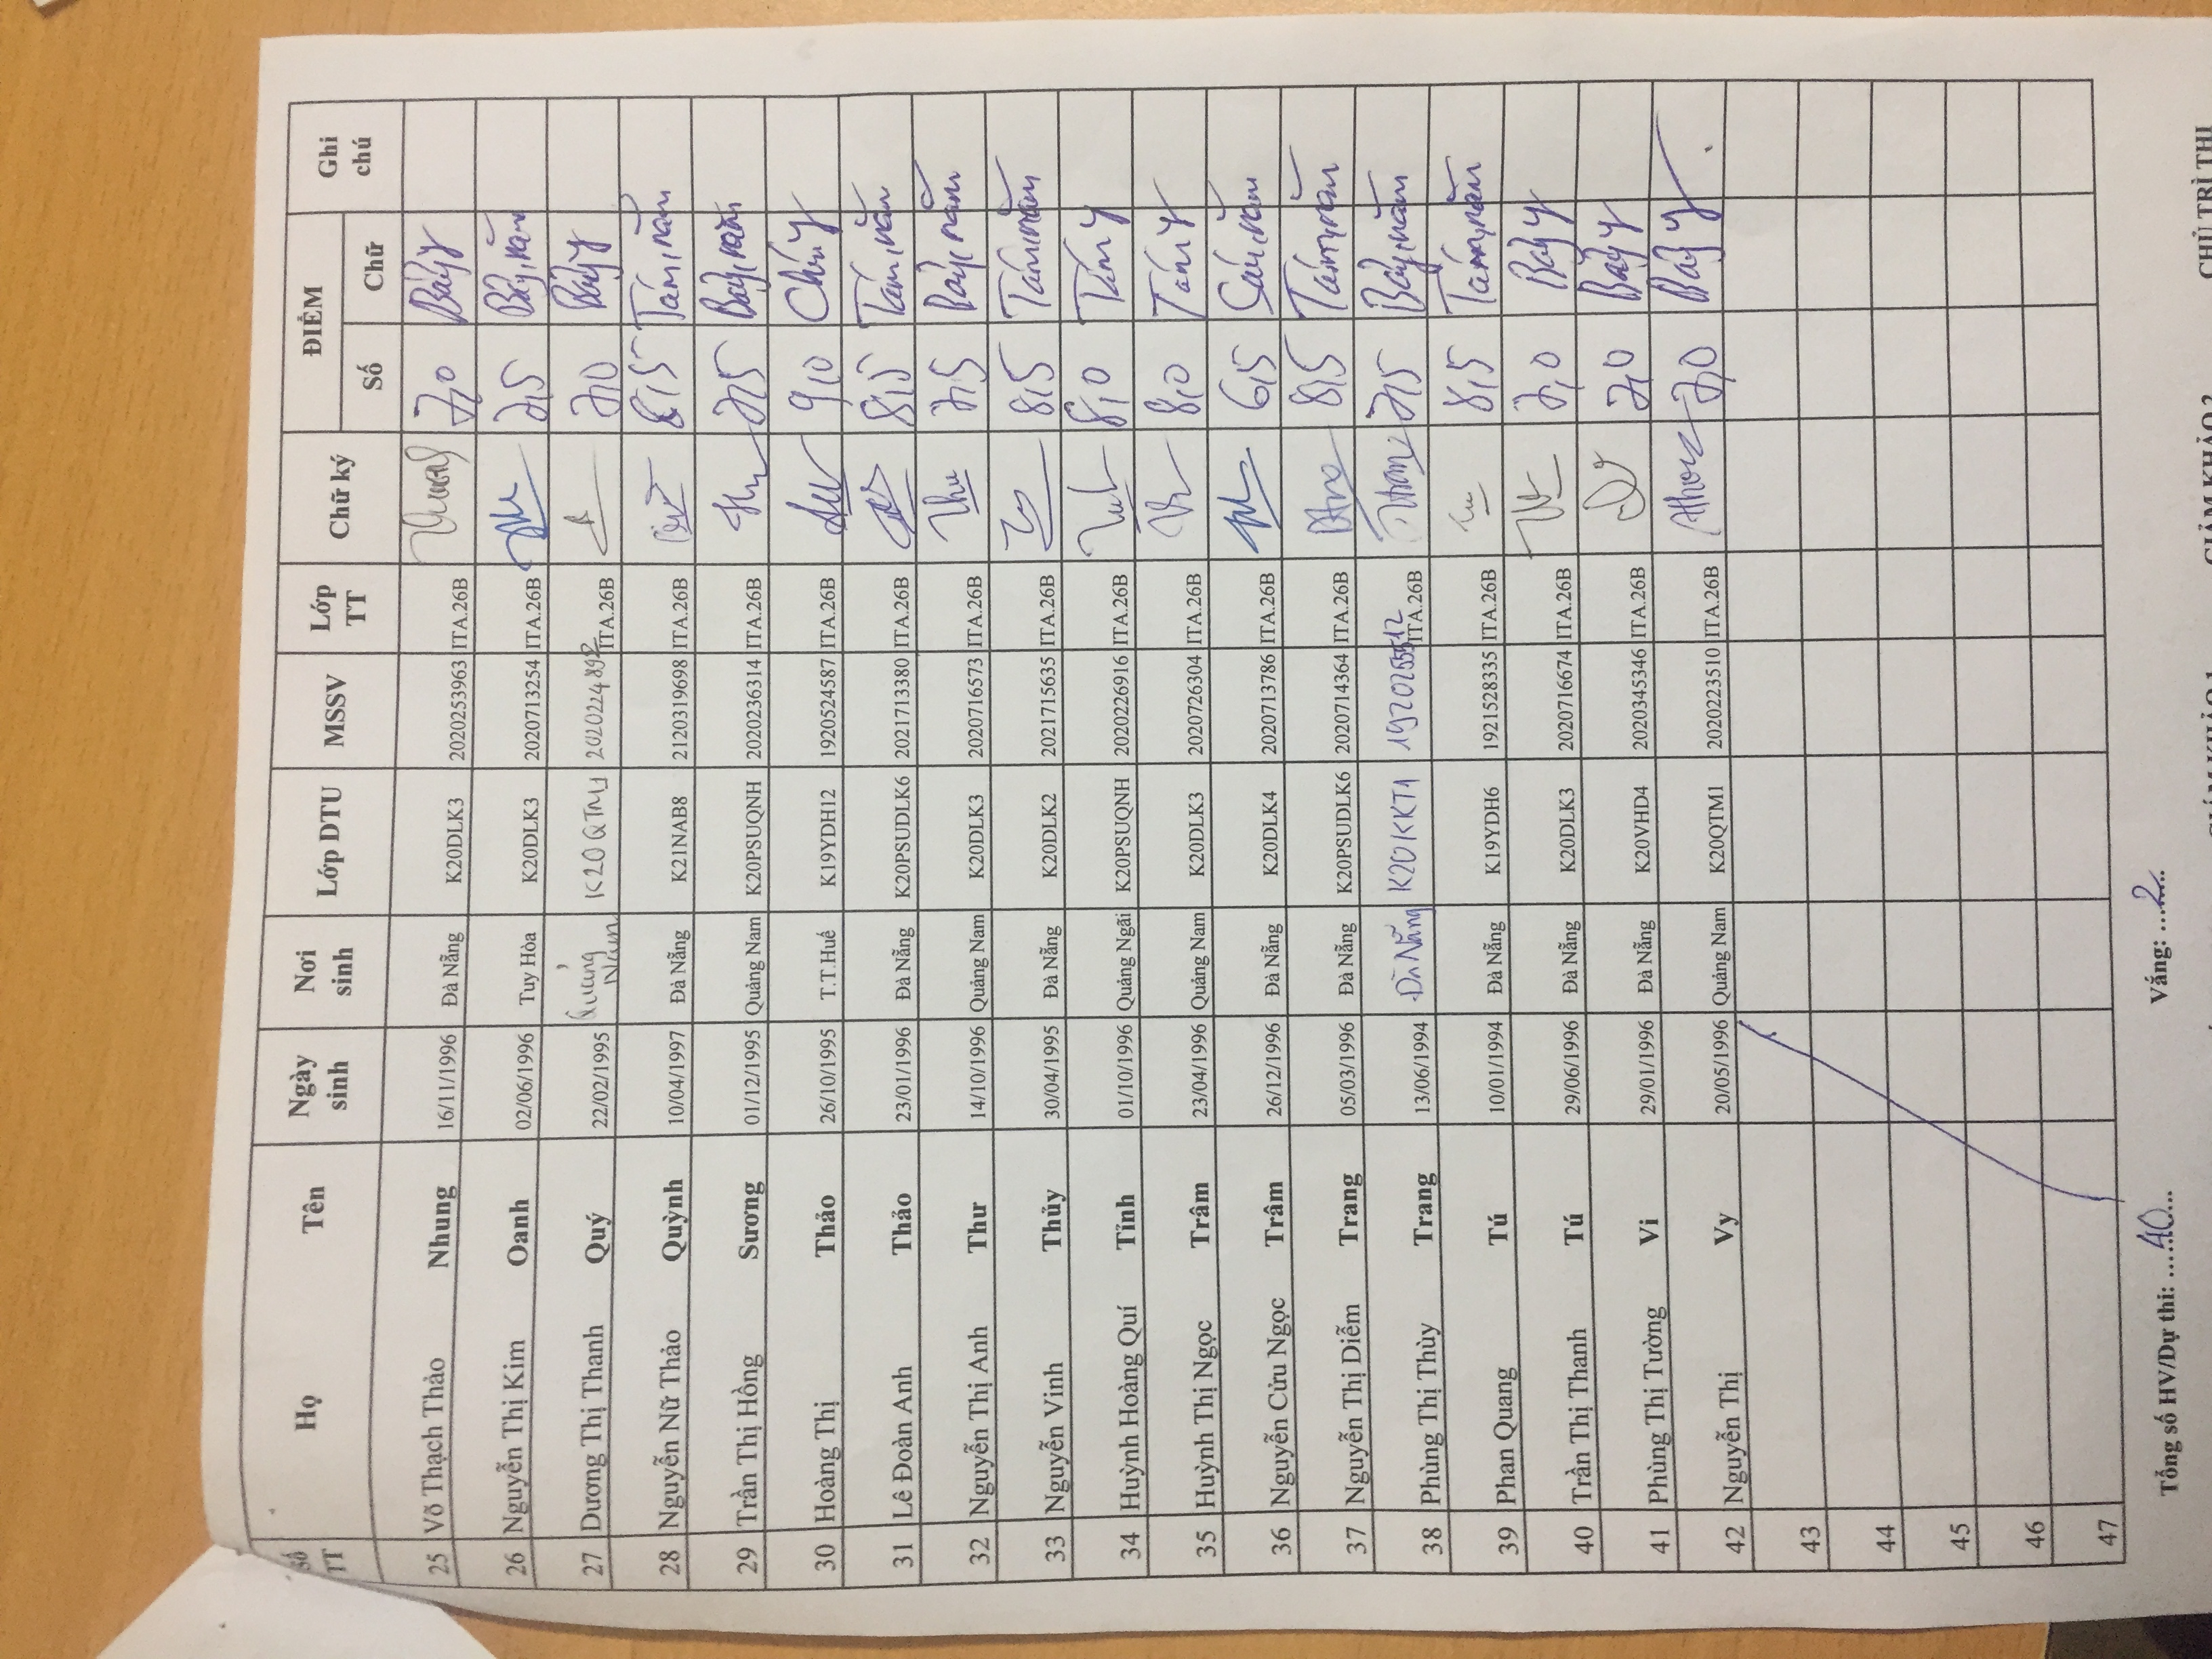 Số TT Họ Tên Ngày sinh Nơi sinh Lớp DTU MSSV Lớp TT Chữ ký ĐIỂM Ghi chú
Số Chữ
25 Võ Thạch Thảo Nhung 16/11/1996 Đà Nẵng K20DLK3 2020253963 ITA.26B 7,0 Bảy
26 Nguyễn Thị Kim Oanh 02/06/1996 Tuy Hòa K20DLK3 2020713254 ITA.26B 7,5 Bảy,năm
27 Dương Thị Thanh Quý 22/02/1995 Quảng Nam K20QTM1 2020224892 ITA.26B 7,0 Bảy
28 Nguyễn Nữ Thảo Quỳnh 10/04/1997 Đà Nẵng K21NAB8 2120319698 ITA.26B 8,5 Tám,năm
29 Trần Thị Hồng Sương 01/12/1995 Quảng Nam K20PSUQNH 2020236314 ITA.26B 7,5 Bảy,năm
30 Hoàng Thị Thảo 26/10/1995 T.T.Huế K19YDH12 1920524587 ITA.26B 9,0 Chín
31 Lê Đoàn Anh Thảo 23/01/1996 Đà Nẵng K20PSUDLK6 2021713380 ITA.26B 8,5 Tám,năm
32 Nguyễn Thị Anh Thư 14/10/1996 Quảng Nam K20DLK3 2020716573 ITA.26B Thu 7,5 Bảy,năm
33 Nguyễn Vinh Thủy 30/04/1995 Đà Nẵng K20DLK2 2021715635 ITA.26B 8,5 Tám,năm
34 Huỳnh Hoàng Quí Tĩnh 01/10/1996 Quảng Ngãi K20PSUQNH 2020226916 ITA.26B 8,0 Tám
35 Huỳnh Thị Ngọc Trâm 23/04/1996 Quảng Nam K20DLK3 2020726304 ITA.26B 8,0 Tám
36 Nguyễn Cửu Ngọc Trâm 26/12/1996 Đà Nẵng K20DLK4 2020713786 ITA.26B 6,5 Sáu,năm
37 Nguyễn Thị Diễm Trang 05/03/1996 Đà Nẵng K20PSUDLK6 2020714364 ITA.26B 8,5 Tám,năm
38 Phùng Thị Thùy Trang 13/06/1994 Đà Nẵng K20KKT1 ITA.26B 7,5 Bảy,năm
39 Phan Quang Tú 10/01/1994 Đà Nẵng K19YDH6 1921528335 ITA.26B 8,5 Tám,năm
40 Trần Thị Thanh Tú 29/06/1996 Đà Nẵng K20DLK3 2020716674 ITA.26B 7,0 Bảy
41 Phùng Thị Tường Vi 29/01/1996 Đà Nẵng K20VHD4 2020345346 ITA.26B 7,0 Bảy
42 Nguyễn Thị Vy 20/05/1996 Quảng Nam K20QTM1 2020223510 ITA.26B 7,0 Bảy
43
44
45
46
47
Tổng số HV/Dự thi: ....40.... Vắng: ....2.....
GIÁM KHẢO 1 GIÁM KHẢO 2 CHỦ TRÌ THI